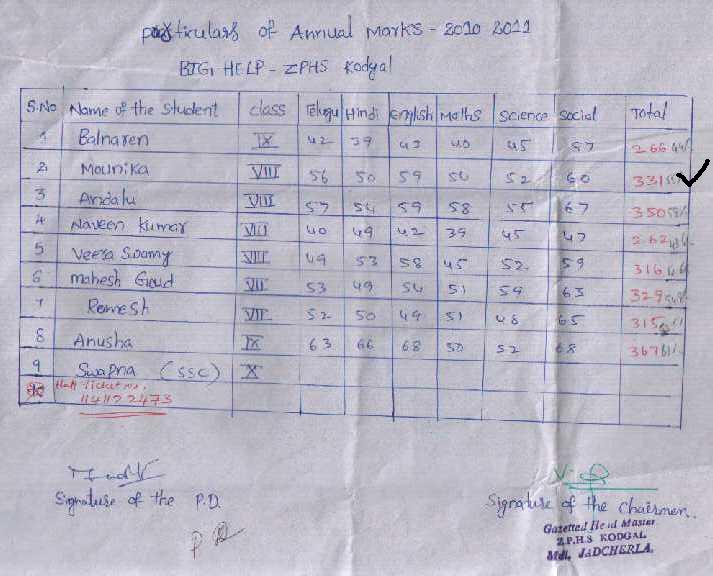 particulars of Annual Marks - 2010 2011
BIG HELP - ZPHS Kodgal
S.No Name of the Student class Telugu Hindi English Maths Science Social Total
1 Balnaren IX 42 39 43 40 45 57 266
2 Mounika VIII 56 50 59 54 52 60 331
3 Andalu VIII 57 54 59 58 55 67 350
4 Naveen Kumar VIII 40 49 42 39 45 47 262
5 Veera Swamy VIII 49 53 58 45 52 59 316
6 mahesh Goud VII 53 49 54 51 59 63 329
7 Ramesh VII 52 50 49 51 48 65 315
8 Anusha IX 63 66 68 50 52 68 367
9 Swapna (SSC) X
Hall Ticket no.
1141122473
Signature of the P.D.
P D
Signature of the Chairmen.
Gazetted Head Master
Z.P.H.S KODGAL
Mdl. JADCHERLA.